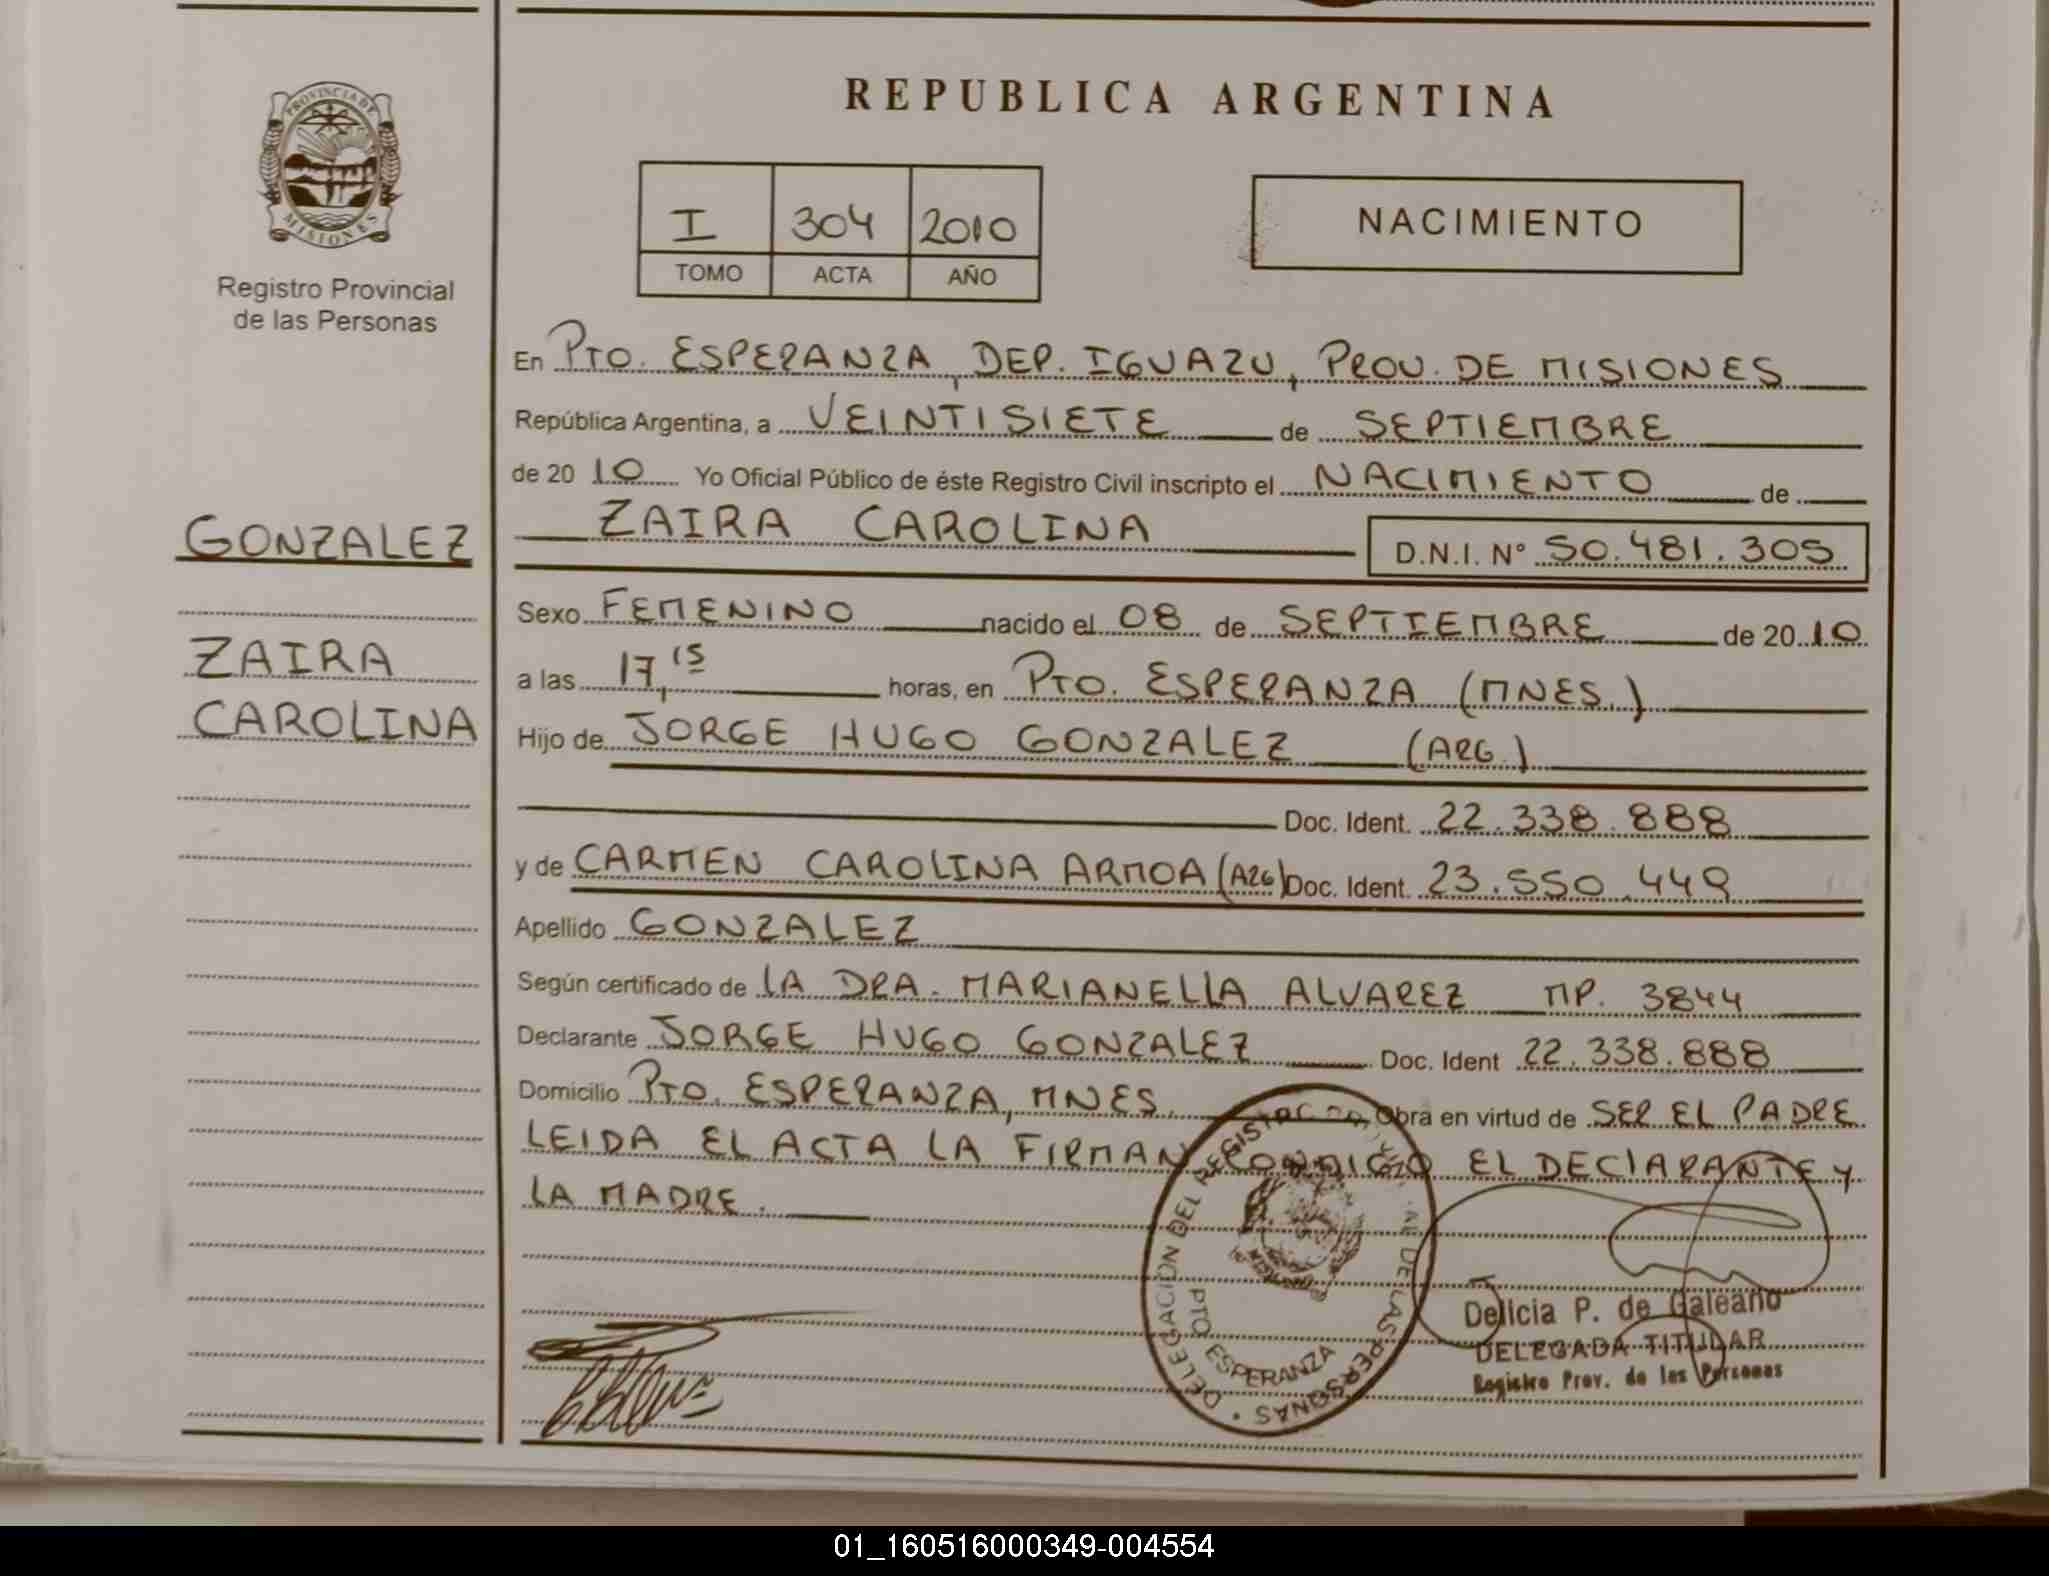 PROVINCIA DE
MISIONES
Registro Provincial
de las Personas
GONZALEZ
ZAIRA
CAROLINA
REPUBLICA ARGENTINA
I 304 2010
TOMO ACTA AÑO
NACIMIENTO
En PTO. ESPERANZA, DEP. IGUAZU, PROV. DE MISIONES
República Argentina, a VEINTISIETE de SEPTIEMBRE
de 20 10 Yo Oficial Público de éste Registro Civil inscripto el NACIMIENTO de
ZAIRA CAROLINA D.N.I. N° 50.481.305
Sexo FEMENINO nacido el 08 de SEPTIEMBRE de 20 10
a las 17,15 horas, en PTO. ESPERANZA (MNES.)
Hijo de JORGE HUGO GONZALEZ (ARG.)
Doc. Ident. 22.338.888
y de CARMEN CAROLINA ARMOA (ARG) Doc. Ident. 23.550.449
Apellido GONZALEZ
Según certificado de LA DRA. MARIANELLA ALVAREZ MP. 3844
Declarante JORGE HUGO GONZALEZ Doc. Ident 22.338.888
Domicilio PTO. ESPERANZA, MNES. Obra en virtud de SER EL PADRE
LEIDA EL ACTA LA FIRMAN CONMIGO EL DECLARANTE Y
LA MADRE.
DELEGACION DEL REGISTRO DE LAS PERSONAS
PTO ESPERANZA
Delicia P. de Galeano
DELEGADA TITULAR
Registro Prov. de las Personas
01_160516000349-004554